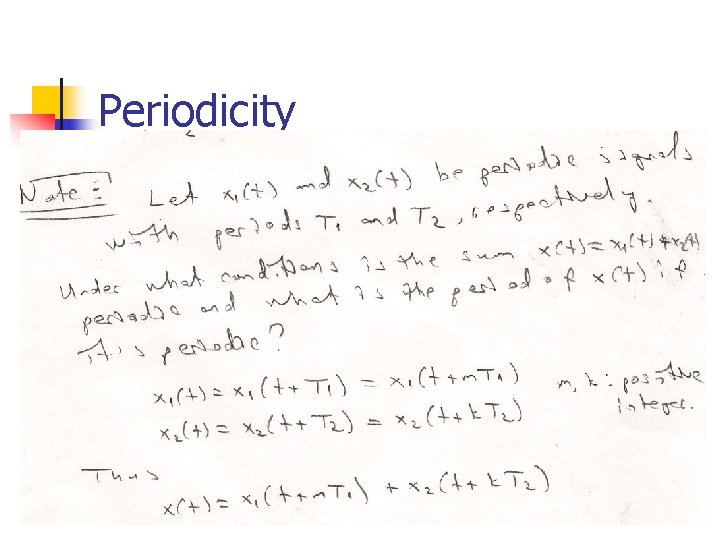 Periodicity
Note: Let x₁(t) and x₂(t) be periodic signals
with periods T₁ and T₂, respectively.
Under what conditions is the sum x(t)=x₁(t)+x₂(t)
periodic and what is the period of x(t) if
it is periodic?
x₁(t) = x₁(t+T₁) = x₁(t+mT₁) m, k : positive
x₂(t) = x₂(t+T₂) = x₂(t+kT₂) integer.
Thus
x(t) = x₁(t+mT₁) + x₂(t+kT₂)